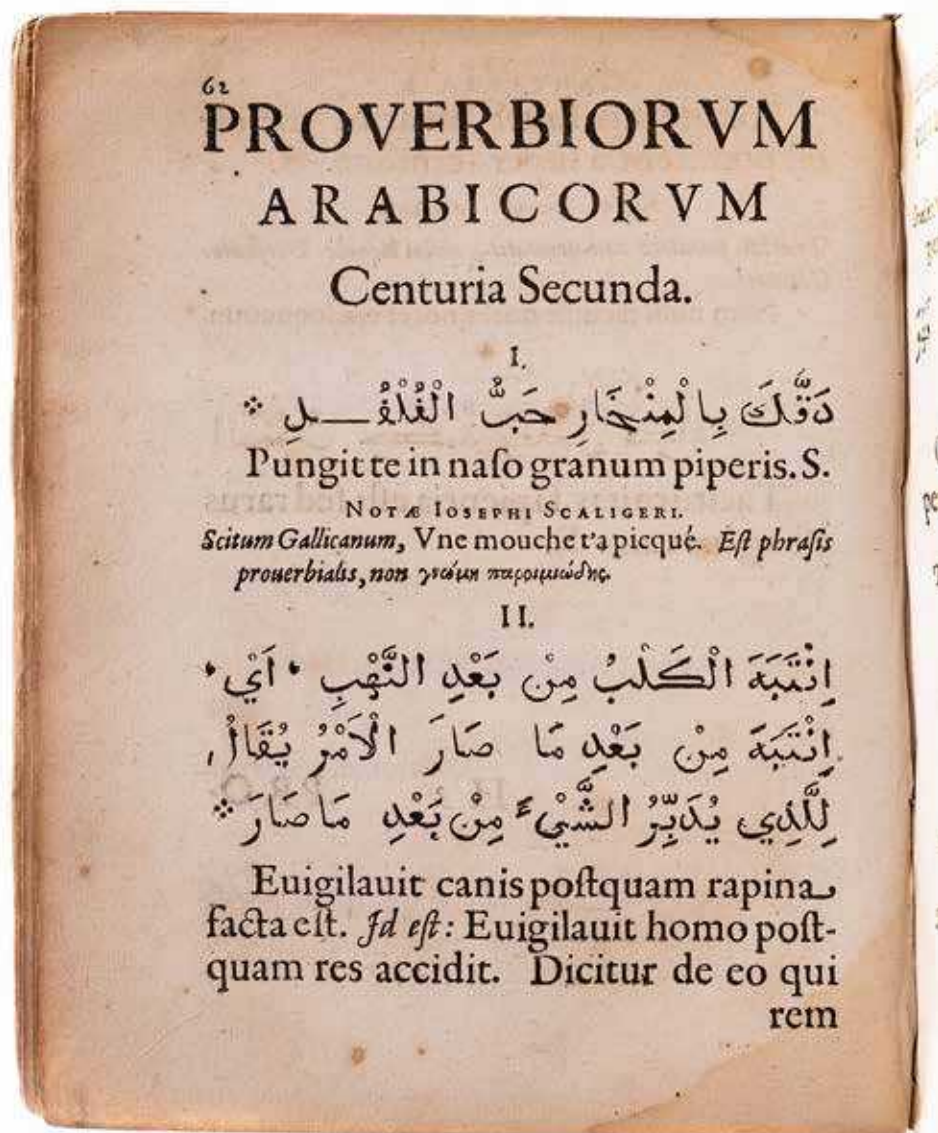 62
PROVERBIORVM
ARABICORVM
Centuria Secunda.
I.
دَقَّكَ بِالْمِنْخَارِ حَبُّ الْفُلْفُــلِ ܀
Pungit te in naſo granum piperis. S.
NOTÆ IOSEPHI SCALIGERI.
Scitum Gallicanum, Vne mouche t'a picqué. Eſt phraſis
prouerbialis, non γνώμη παροιμιώδης.
II.
اِنْتَبَهَ الْكَلْبُ مِنْ بَعْدِ النَّهْبِ ، اَيْ ،
اِنْتَبَهَ مِنْ بَعْدِ مَا صَارَ الْاَمْرُ يُقَالُ
لِلَّذِي يُدَبِّرُ الشَّيْءَ مِنْ بَعْدِ مَا صَارَ ܀
Euigilauit canis poſtquam rapina
facta eſt. Id eſt: Euigilauit homo poſt-
quam res accidit. Dicitur de eo qui
rem